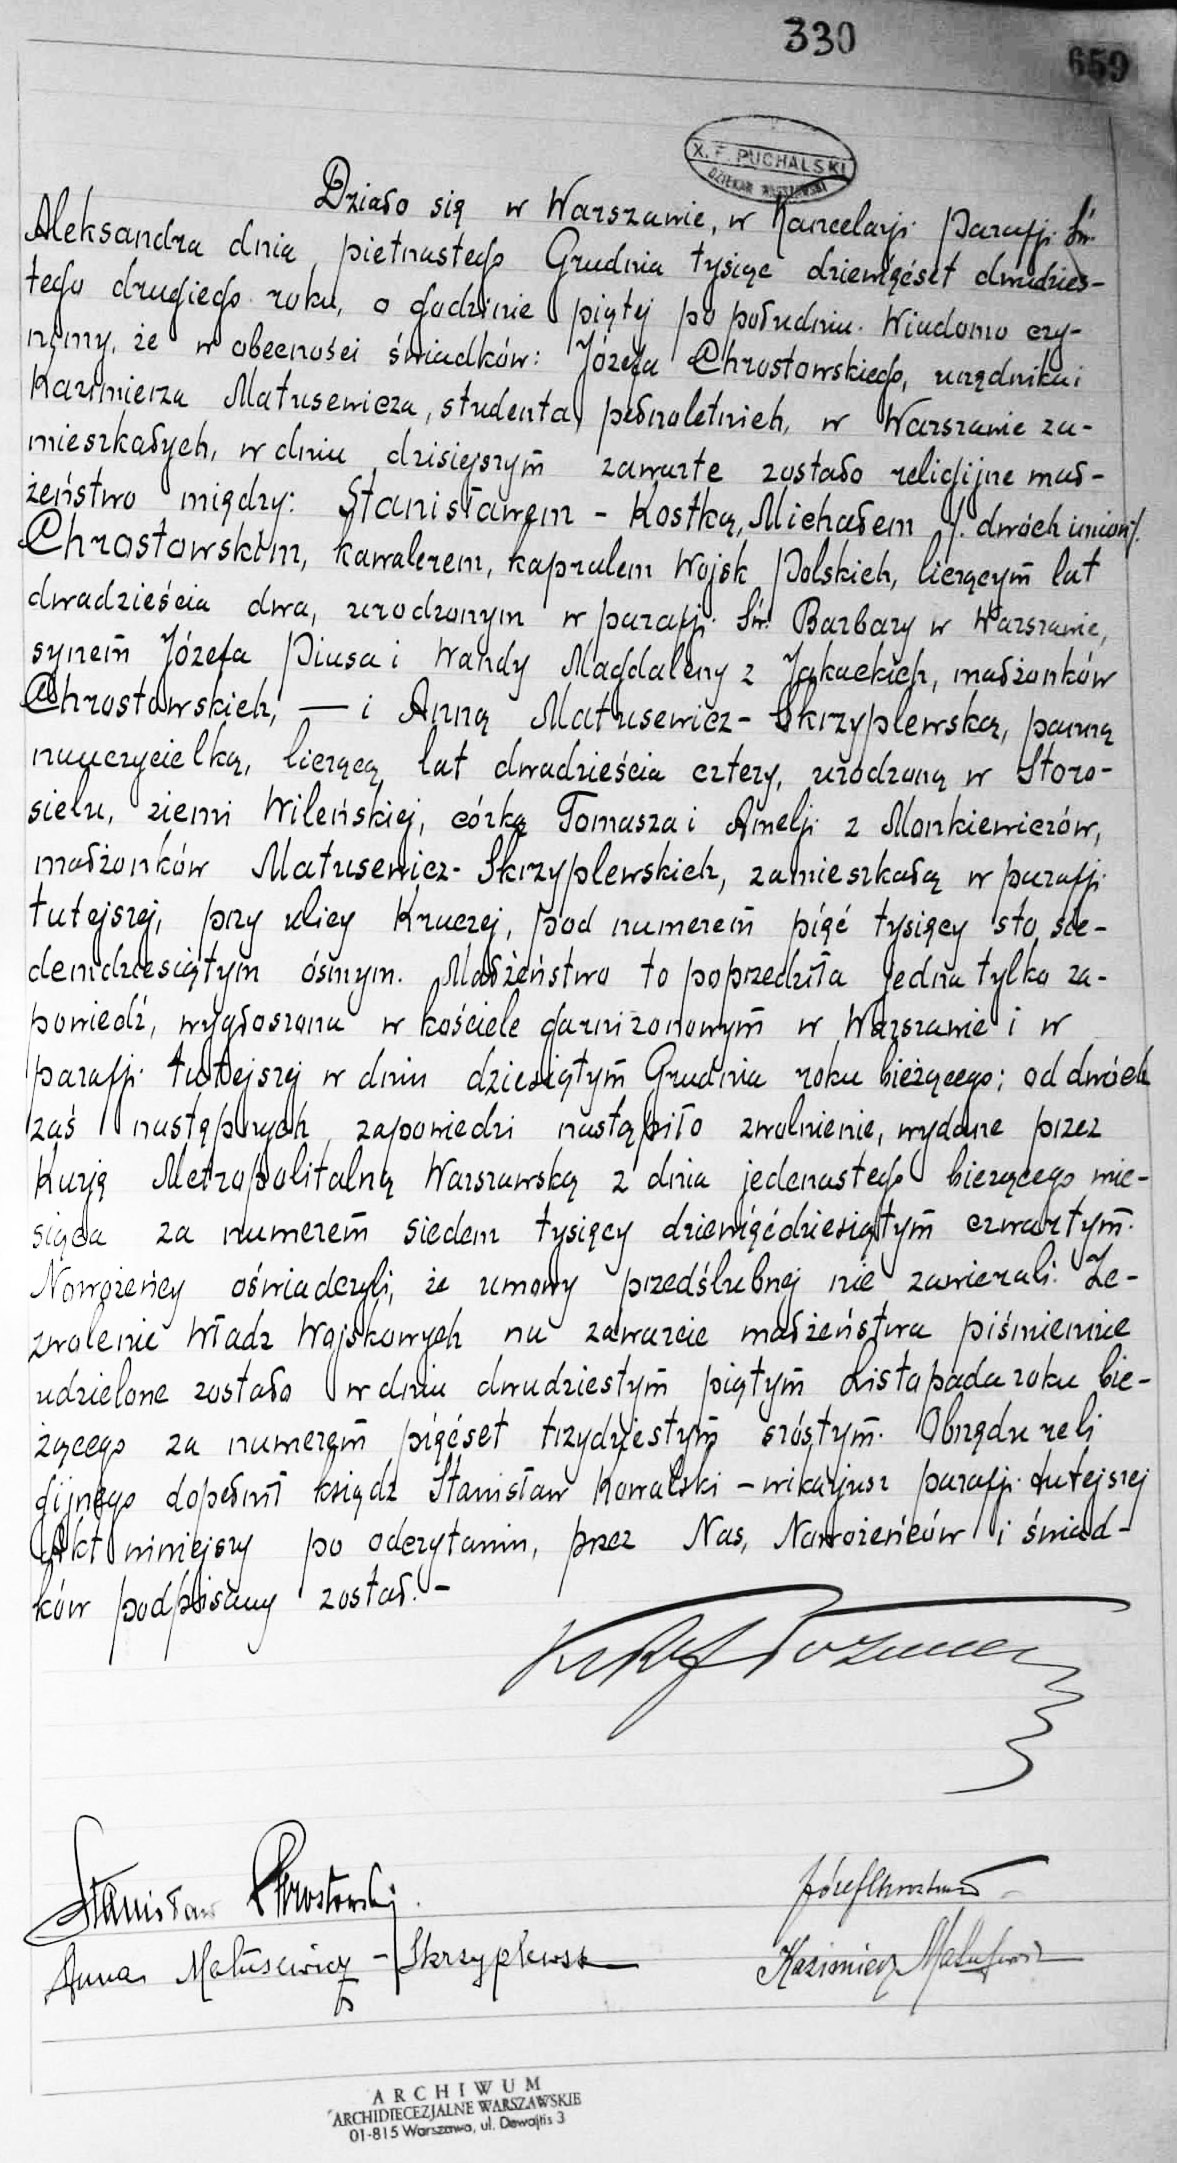 330
659
X. F. PUCHALSKI
DZIEKAN WARSZAWSKI
Działo się w Warszawie, w Kancelarji Parafji Św.
Aleksandra dnia piętnastego Grudnia tysiąc dziewięćset dwudzies-
tego drugiego roku, o godzinie piątej po południu. Wiadomo czy-
nimy, że w obecności świadków: Józefa Chrostowskiego, urzędnika i
Kazimierza Matusewicza, studenta, pełnoletnich, w Warszawie za-
mieszkałych, w dniu dzisiejszym zawarte zostało religijne mał-
żeństwo między: Stanisławem - Kostką, Michałem /. dwóch imion/.
Chrostowskim, kawalerem, kapralem Wojsk Polskich, liczącym lat
dwadzieścia dwa, urodzonym w parafji Św. Barbary w Warszawie,
synem Józefa Piusa i Wandy Magdaleny z Jakackich, małżonków
Chrostowskich, — i Anną Matusewicz - Skrzyplewską, panną
nauczycielką, liczącą lat dwadzieścia cztery, urodzoną w Storo-
sielu, ziemi Wileńskiej, córką Tomasza i Amelji z Monkiewiczów,
małżonków Matusewicz - Skrzyplewskich, zamieszkałą w parafji
tutejszej, przy ulicy Kruczej, pod numerem pięć tysięcy sto sie-
demdziesiątym ósmym. Małżeństwo to poprzedziła jedna tylko za-
powiedź, wygłoszona w kościele garnizonowym w Warszawie i w
parafji tutejszej w dniu dziesiątym Grudnia roku bieżącego; od dwóch
zaś następnych zapowiedzi nastąpiło zwolnienie, wydane przez
Kurję Metropolitalną Warszawską z dnia jedenastego bieżącego mie-
siąca za numerem siedem tysięcy dziewięćdziesiątym czwartym.
Nowożeńcy oświadczyli, że umowy przedślubnej nie zawierali. Ze-
zwolenie Władz Wojskowych na zawarcie małżeństwa piśmiennie
udzielone zostało w dniu dwudziestym piątym Listopada roku bie-
żącego za numerem pięćset trzydziestym szóstym. Obrzędu reli
gijnego dopełnił ksiądz Stanisław Kowalski - wikarjusz parafji tutejszej
Akt niniejszy po odczytaniu, przez Nas, Nowożeńców i świad-
ków podpisany został. -
Stanisław Chrostowski
Józef Chrostowski
Anna Matusewicz - Skrzyplewska
Kazimierz Matusewicz
ARCHIWUM
ARCHIDIECEZJALNE WARSZAWSKIE
01-815 Warszawa, ul. Dewajtis 3